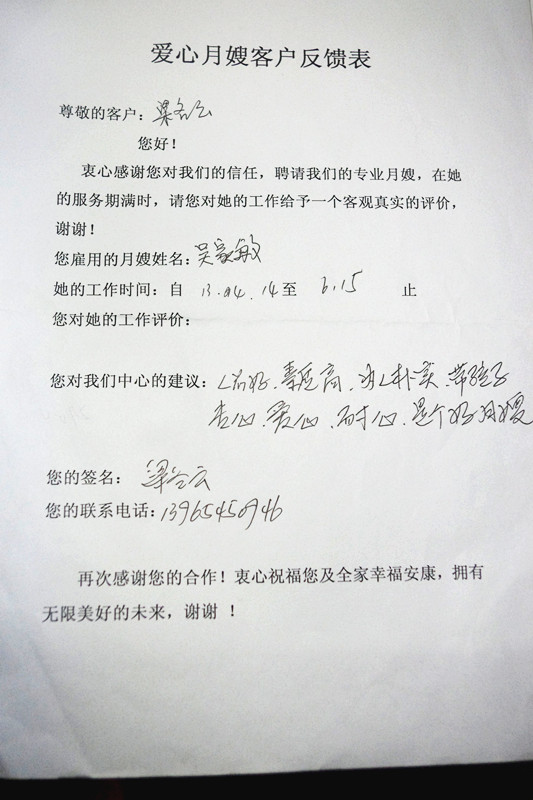 爱心月嫂客户反馈表
尊敬的客户：梁谷云
您好！
衷心感谢您对我们的信任，聘请我们的专业月嫂，在她
的服务期满时，请您对她的工作给予一个客观真实的评价，
谢谢！
您雇用的月嫂姓名：吴家敏
她的工作时间：自 13.04.14至 6.15 止
您对她的工作评价：
您对我们中心的建议：人品好、素质高、为人朴实、带孩子
专心、爱心、耐心、是个好月嫂
您的签名：梁谷云
您的联系电话：13965450946
再次感谢您的合作！衷心祝福您及全家幸福安康，拥有
无限美好的未来，谢谢 ！